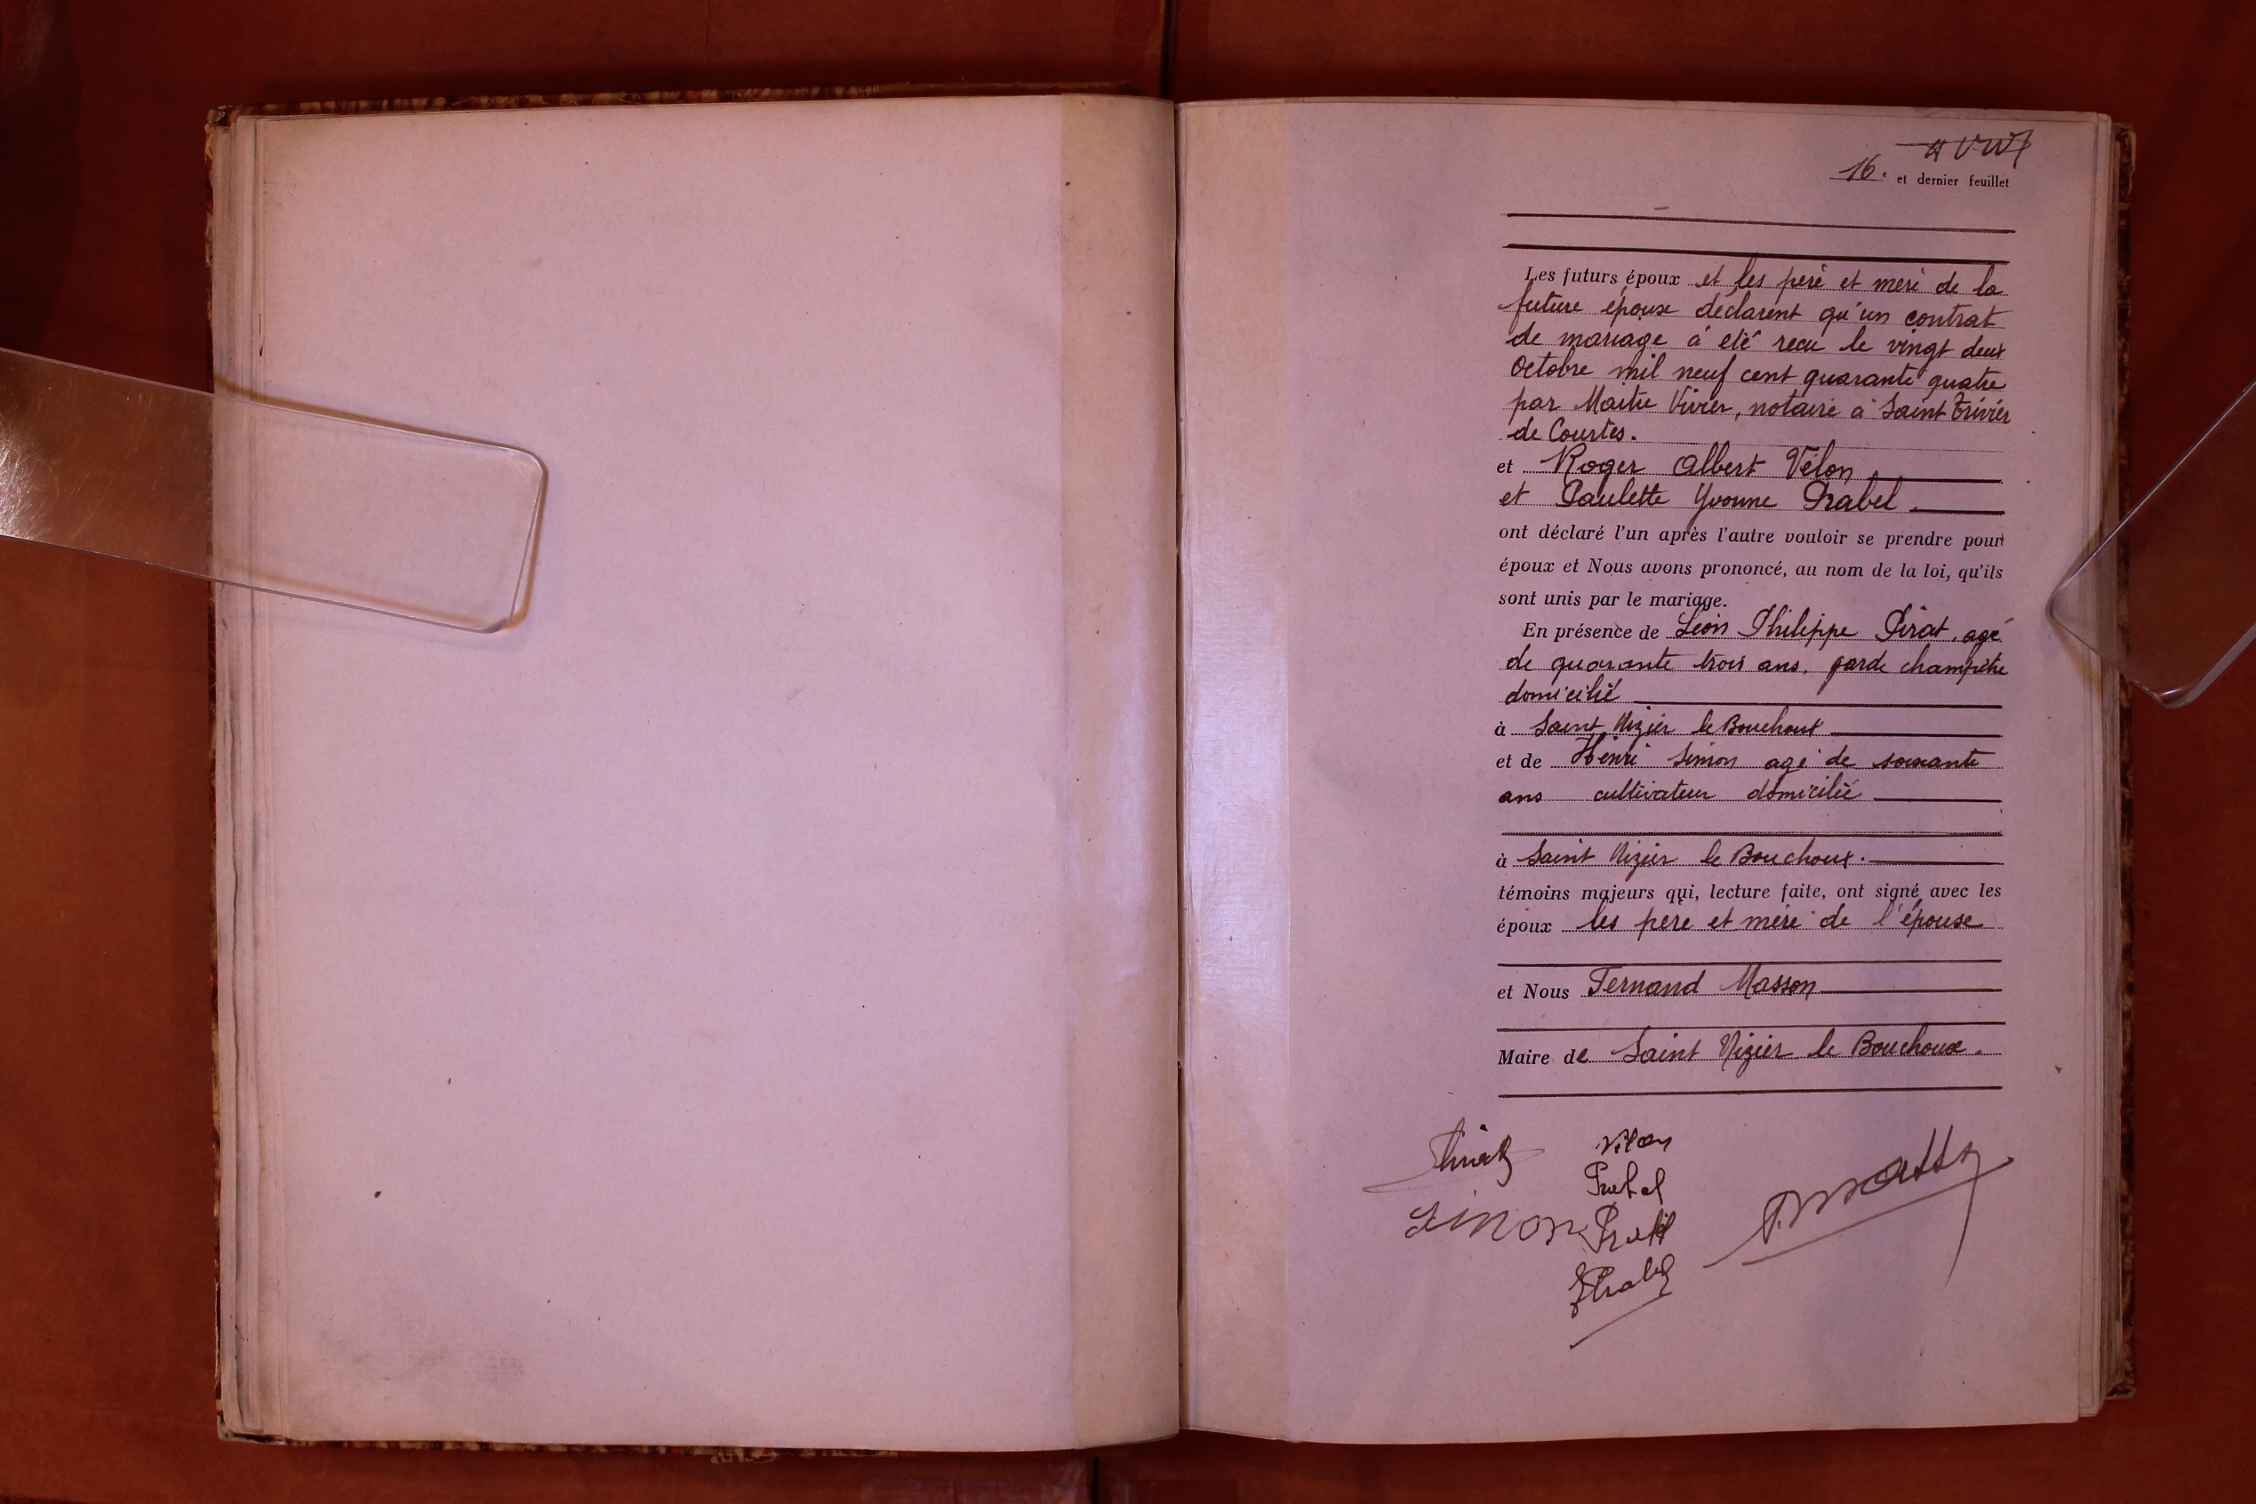 16. et dernier feuillet
Les futurs époux et les père et mère de la
future épouse déclarent qu'un contrat
de mariage a été recu le vingt deux
Octobre mil neuf cent quarante quatre
par Maitre Vivier, notaire à Saint Trivier
de Courtes.
et Roger Albert Vélon
et Paulette Yvonne Prabel.
ont déclaré l'un après l'autre vouloir se prendre pour
époux et Nous avons prononcé, au nom de la loi, qu'ils
sont unis par le mariage.
En présence de Léon Philippe Pirat, agé
de quarante trois ans, garde champêtre
domicilié
à Saint Nizier le Bouchoux
et de Henri Simon agé de soixante
ans cultivateur domicilié
à Saint Nizier le Bouchoux.
témoins majeurs qui, lecture faite, ont signé avec les
époux les père et mère de l'épouse
et Nous Fernand Masson
Maire de Saint Nizier le Bouchoux.
Pirat Vélon
Prabel
Simon Prabel F. Masson
Prabel